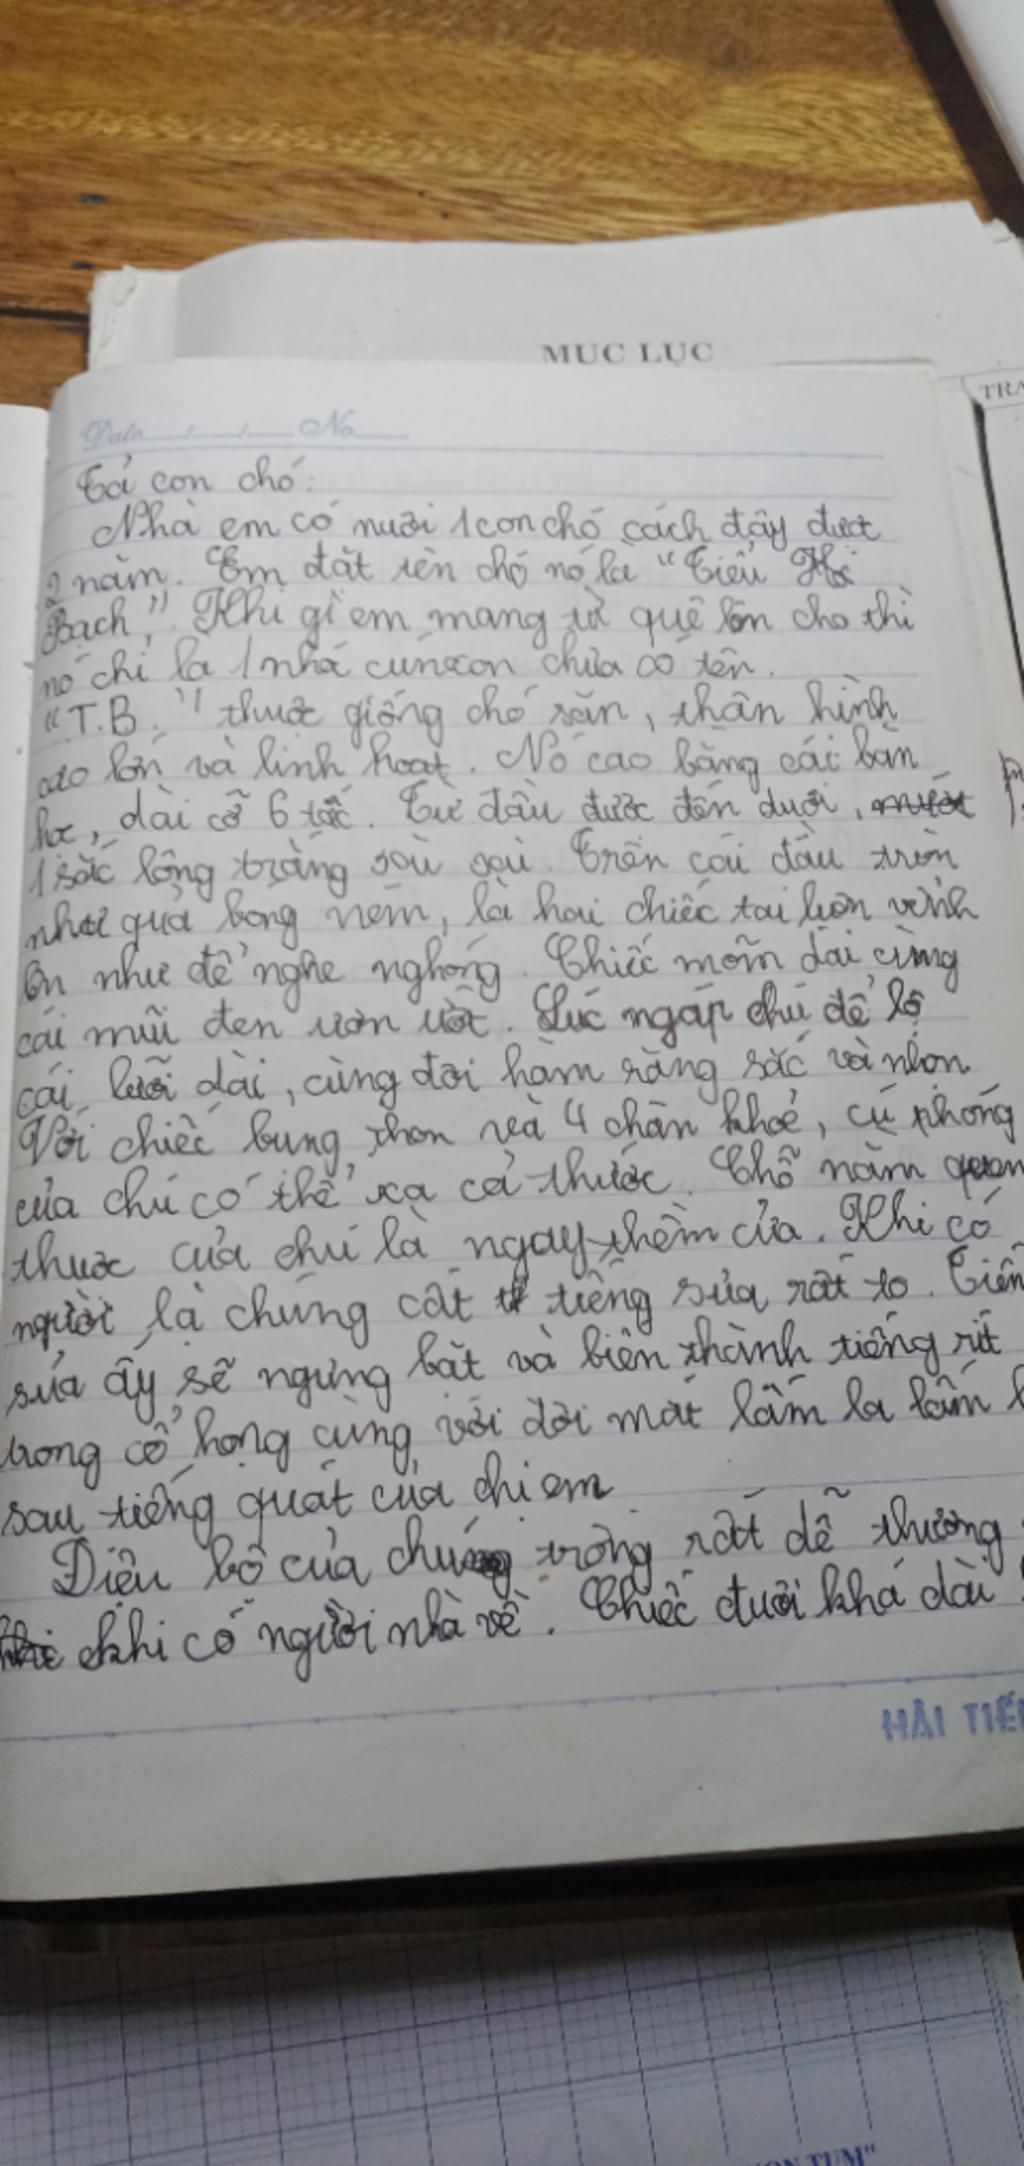 MỤC LỤC
TRA
Date / / No
Tả con chó:
Nhà em có nuôi 1 con chó cách đây được
2 năm. Em đặt tên chó nó là "Tiểu
Bạch". Khi gì em mang từ quê lên cho thì
nó chỉ là 1 nhá cún con chưa có tên.
"T.B." thuộc giống chó săn, thân hình
cao lớn và linh hoạt. Nó cao bằng cái bàn
học, dài cỡ 6 tấc. Từ đầu được đến duơi,
1 sắc lông trắng xù xù. Trên cái đầu tròn
như quả bóng ném, là hai chiếc tai luôn vểnh
lên như để nghe nghóng. Chiếc mõm dài cùng
cái mũi đen ươn ướt. Lúc ngáp chú để lộ
cái lưỡi dài, cùng đôi hàm răng sắc và nhọn.
Với chiếc bụng thon và 4 chân khoẻ, cú phóng
của chú có thể xa cả thước. Chỗ nằm quen
thuộc của chú là ngay thềm cửa. Khi có
người lạ chúng cất tiếng sủa rất to. Tiến
sủa ấy sẽ ngưng bặt và biến thành tiếng rít
trong cổ họng cùng với đôi mắt lấm la lấm l
sau tiếng quát của chị em
Điệu bộ của chú trông rất dễ thương
khi có người nhà về. Chiếc đuôi khá dài
HẢI TIẾN